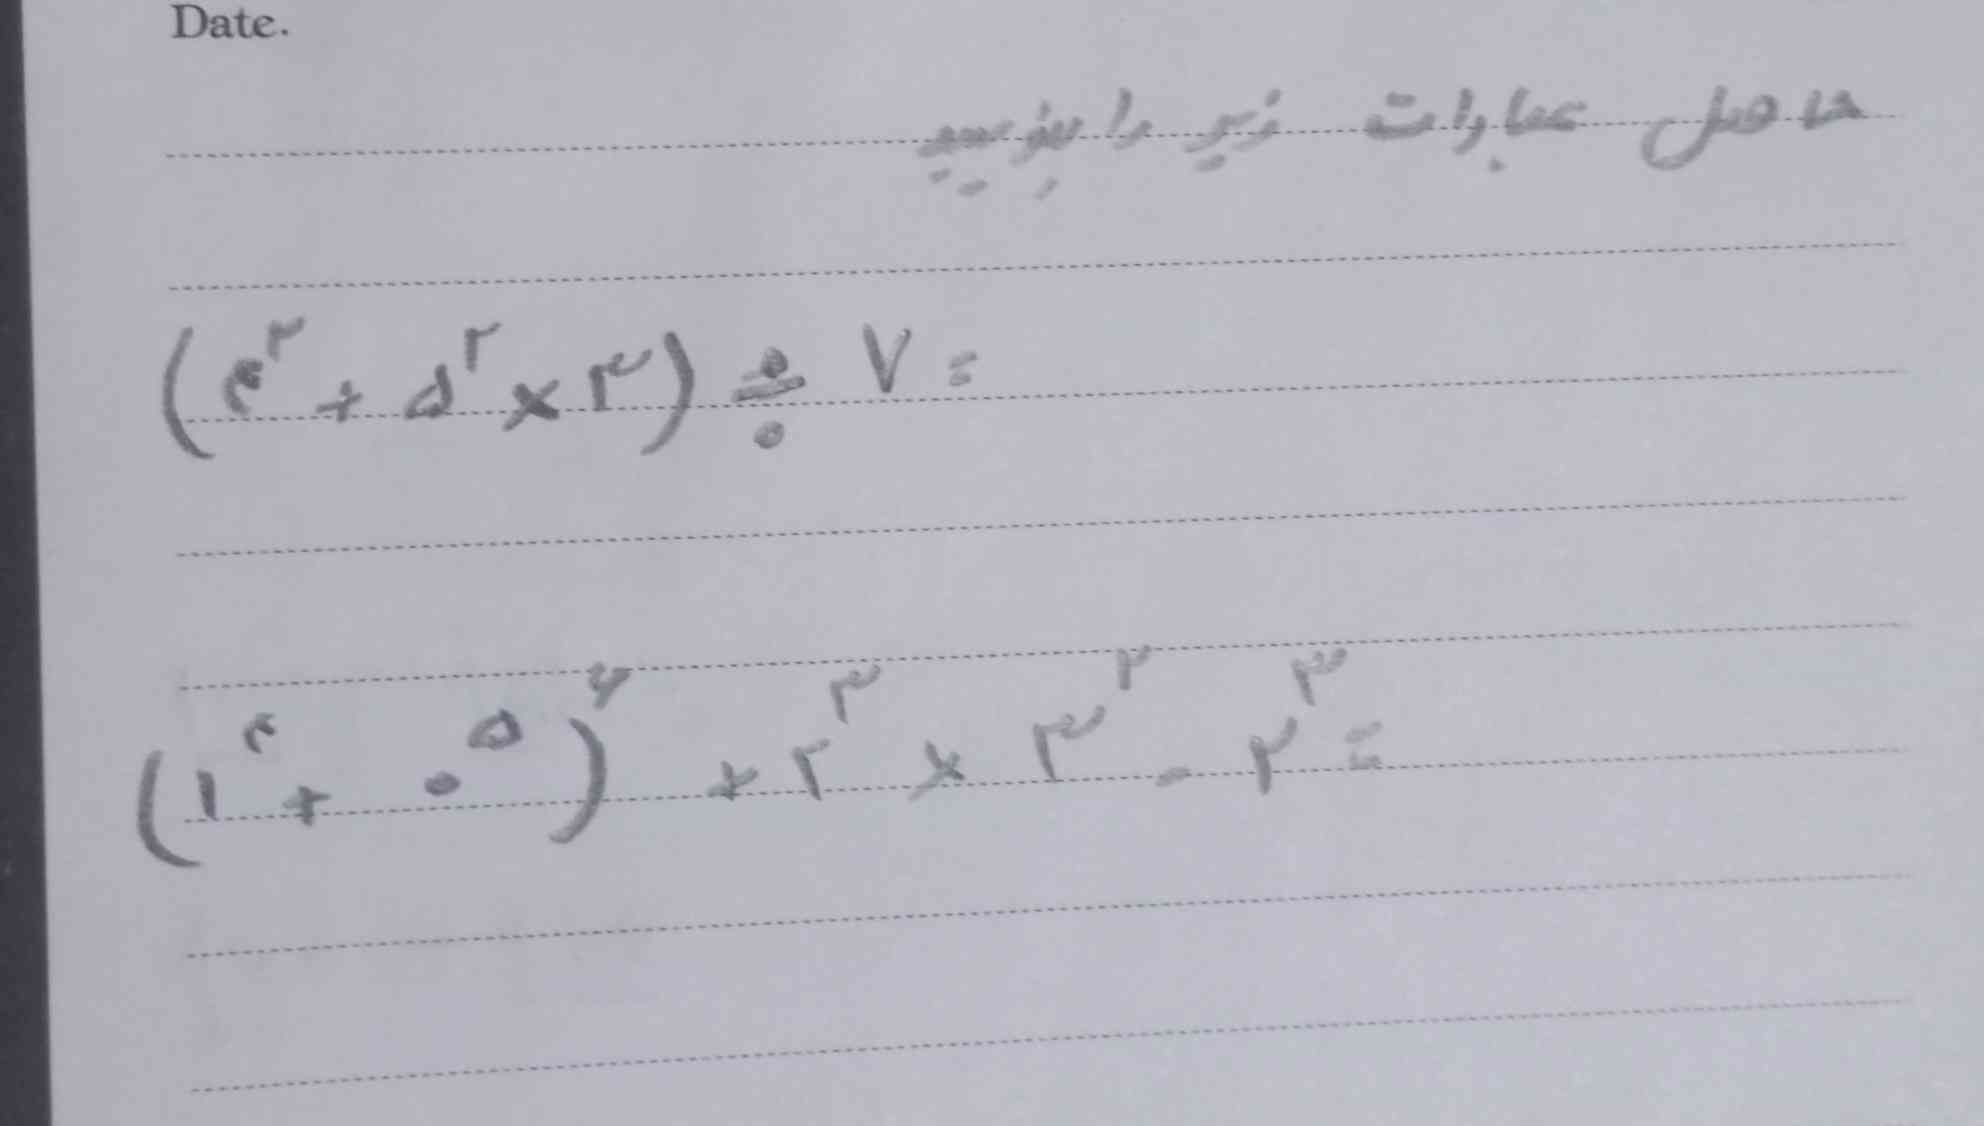 Date.
حاصل عبارات زیر را بنویسید
(۴^۲ + ۵^۲ × ۳) ÷ ۷ =
(۱^۴ + ۰^۵)^۷ + ۲^۳ × ۳^۲ - ۲^۳ =